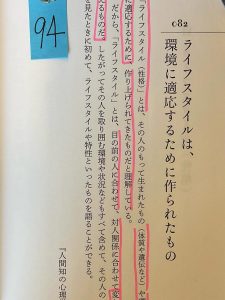 94
082
ライフスタイルは、
環境に適応するために作られたもの
ライフスタイル(性格)とは、その人のもって生まれたもの(体質や遺伝など)や
に適応するために、作り上げられてきたものだと理解している。
だから、「ライフスタイル」とは、目の前の人に合わせて、対人関係に合わせて変
えるものだ。したがってその人を取り囲む環境や状況などもすべて含めて、その人の
と見たときに初めて、ライフスタイルや特性といったものを語ることができる。
『人間知の心理